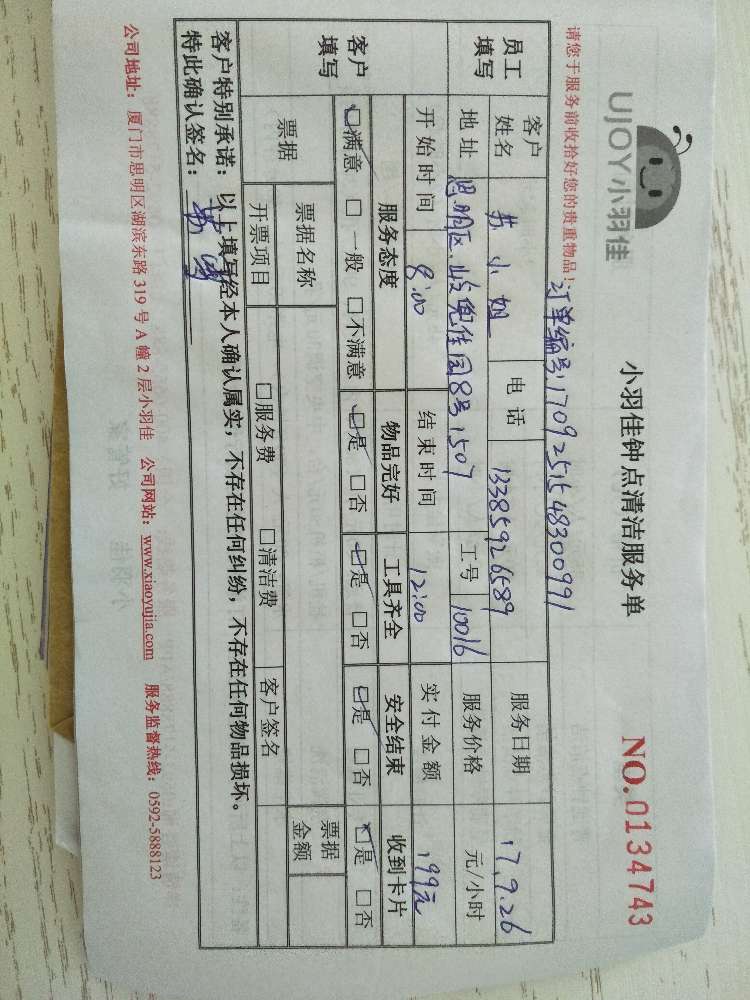 UJOY小羽佳
小羽佳钟点清洁服务单
NO.0134743
请您于服务前收拾好您的贵重物品!
订单编号:1709251548300991
员工填写
客户姓名 苏小姐 电话 13385926589 服务日期 17.9.26
地址 思明区.屿兜佳园8号1507 工号 10016 服务价格 元/小时
开始时间 8:00 结束时间 12:00 实付金额 199元
客户填写
服务态度 物品完好 工具齐全 安全结束 收到卡片
☑满意 □一般 □不满意 ☑是 □否 ☑是 □否 ☑是 □否 ☑是 □否
票据 票据名称 票据金额
开票项目 □服务费 □清洁费 客户签名
客户特别承诺:以上填写经本人确认属实,不存在任何纠纷,不存在任何物品损坏。
特此确认签名:
公司地址:厦门市思明区湖滨东路319号A幢2层小羽佳 公司网站:www.xiaoyujia.com 服务监督热线:0592-5888123